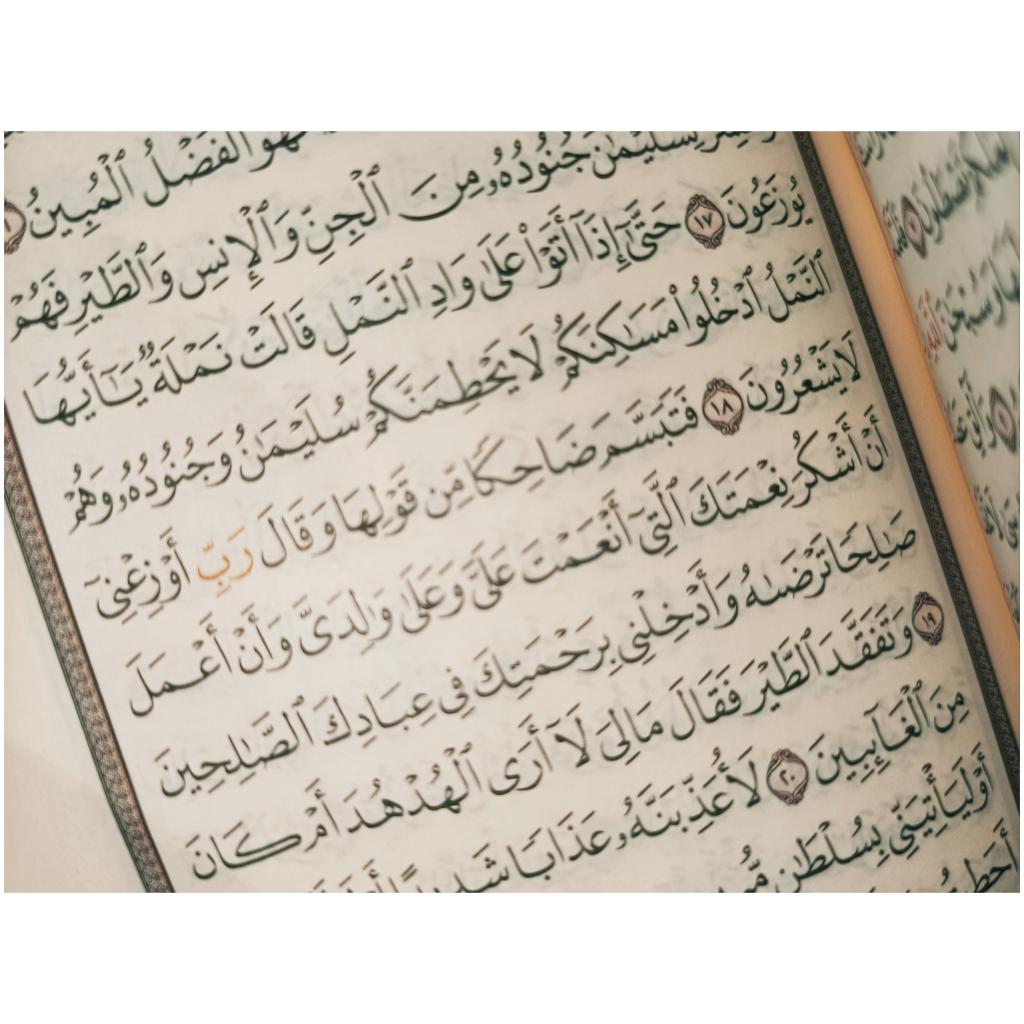 لَهُوَ ٱلْفَضْلُ ٱلْمُبِينُ
لِسُلَيْمَٰنَ جُنُودُهُۥ مِنَ ٱلْجِنِّ وَٱلْإِنسِ وَٱلطَّيْرِ فَهُمْ
يُوزَعُونَ ١٧ حَتَّىٰٓ إِذَآ أَتَوْا۟ عَلَىٰ وَادِ ٱلنَّمْلِ قَالَتْ نَمْلَةٌ يَٰٓأَيُّهَا
ٱلنَّمْلُ ٱدْخُلُوا۟ مَسَٰكِنَكُمْ لَا يَحْطِمَنَّكُمْ سُلَيْمَٰنُ وَجُنُودُهُۥ وَهُمْ
لَا يَشْعُرُونَ ١٨ فَتَبَسَّمَ ضَاحِكًا مِّن قَوْلِهَا وَقَالَ رَبِّ أَوْزِعْنِىٓ
أَنْ أَشْكُرَ نِعْمَتَكَ ٱلَّتِىٓ أَنْعَمْتَ عَلَىَّ وَعَلَىٰ وَٰلِدَىَّ وَأَنْ أَعْمَلَ
صَٰلِحًا تَرْضَىٰهُ وَأَدْخِلْنِى بِرَحْمَتِكَ فِى عِبَادِكَ ٱلصَّٰلِحِينَ
١٩ وَتَفَقَّدَ ٱلطَّيْرَ فَقَالَ مَالِىَ لَآ أَرَى ٱلْهُدْهُدَ أَمْ كَانَ
مِنَ ٱلْغَآئِبِينَ ٢٠ لَأُعَذِّبَنَّهُۥ عَذَابًا شَدِيدًا
أَوْ لَيَأْتِيَنِّى بِسُلْطَٰنٍ